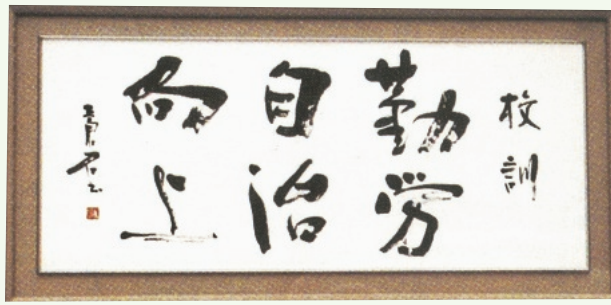 校訓
勤労
自治
向上